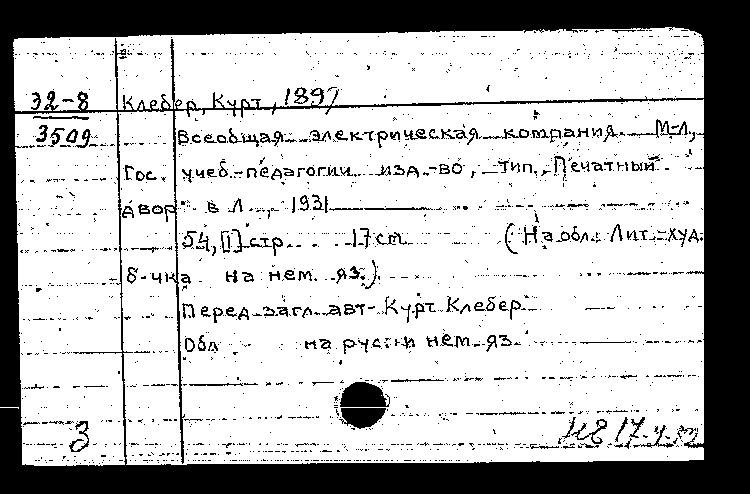 32-8 Клебер, Курт, 1897
3509 Всеобщая электрическая компания. М-Л,
Гос. учеб.-педагогич изд.-во, тип. Печатный
двор в Л., 1931
54, [1] стр. 17 cm (На обл.: Лит.-худ.
б-чка на нем. яз.)
Перед загл. авт- Курт Клебер
Обл на рус и нем. яз.
3